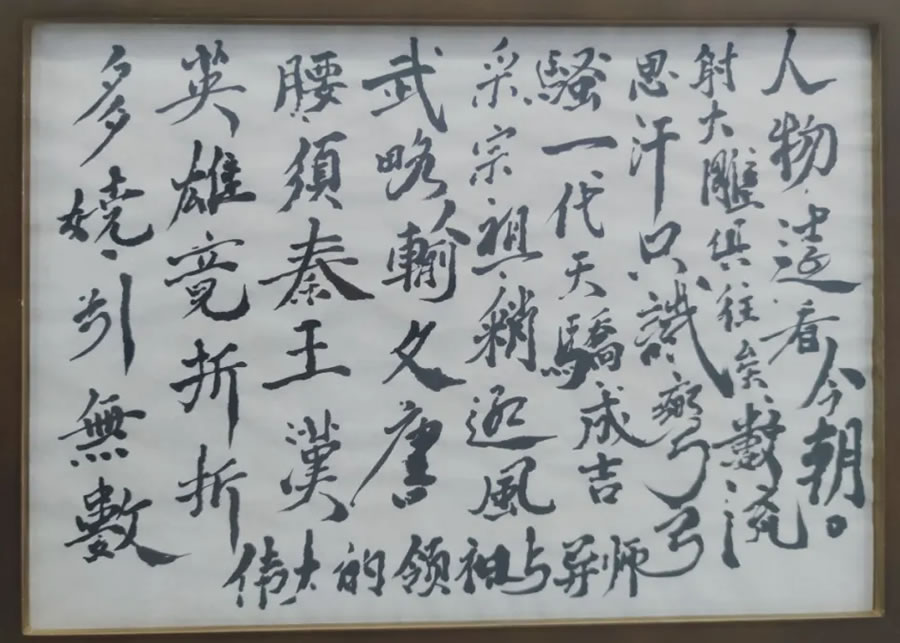 多嬌引無數
英雄竞折折
腰須秦王漢
武略輸文唐
采宗祖稍逊風
騷一代天驕成吉
思汗只識彎弓
射大雕俱往矣數流
人物還看今朝。
伟大的领袖与师